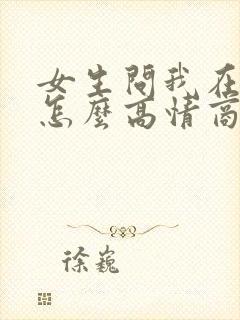 女生問我在
怎麼高情商
徐巍